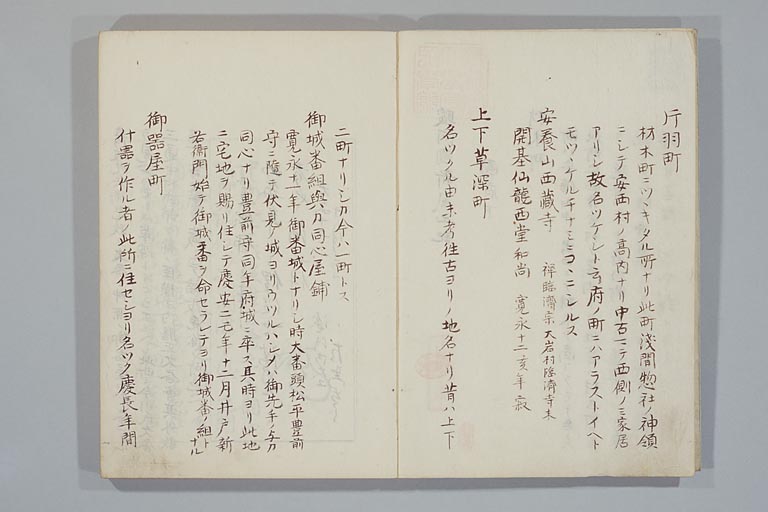 片羽町
材木町ニツヽキタル所ナリ此町浅間惣社ノ神領
ニシテ安西村ノ高内ナリ中古マテ西側ノミ家居
アリシ故名ツケシト云府ノ町ニハアラストイヘト
モツヽケルチナミニコヽニシルス
安養山西蔵寺 禅臨濟宗大岩村臨濟寺末
開基仙龍西堂和尚 寛永十二亥年寂
上下草深町
名ツクル由未考往古ヨリノ地名ナリ昔ハ上下
二町ナリシカ今ハ一町トス
御城番組與力同心屋鋪
寛永十一年御番城トナリシ時大番頭松平豊前
守ニ隨テ伏見ノ城ヨリウツルハシメハ御先手ノ与力
同心ナリ豊前守同年府城ニ卒ス其時ヨリ此地
ニ宅地ヲ賜リ住シテ慶安二元年十二月井戸新
右衛門始テ御城番ヲ命セラレテヨリ御城番ノ組トナル
御器屋町
什器ヲ作ル者ノ此所ニ住セシヨリ名ツク慶長年間